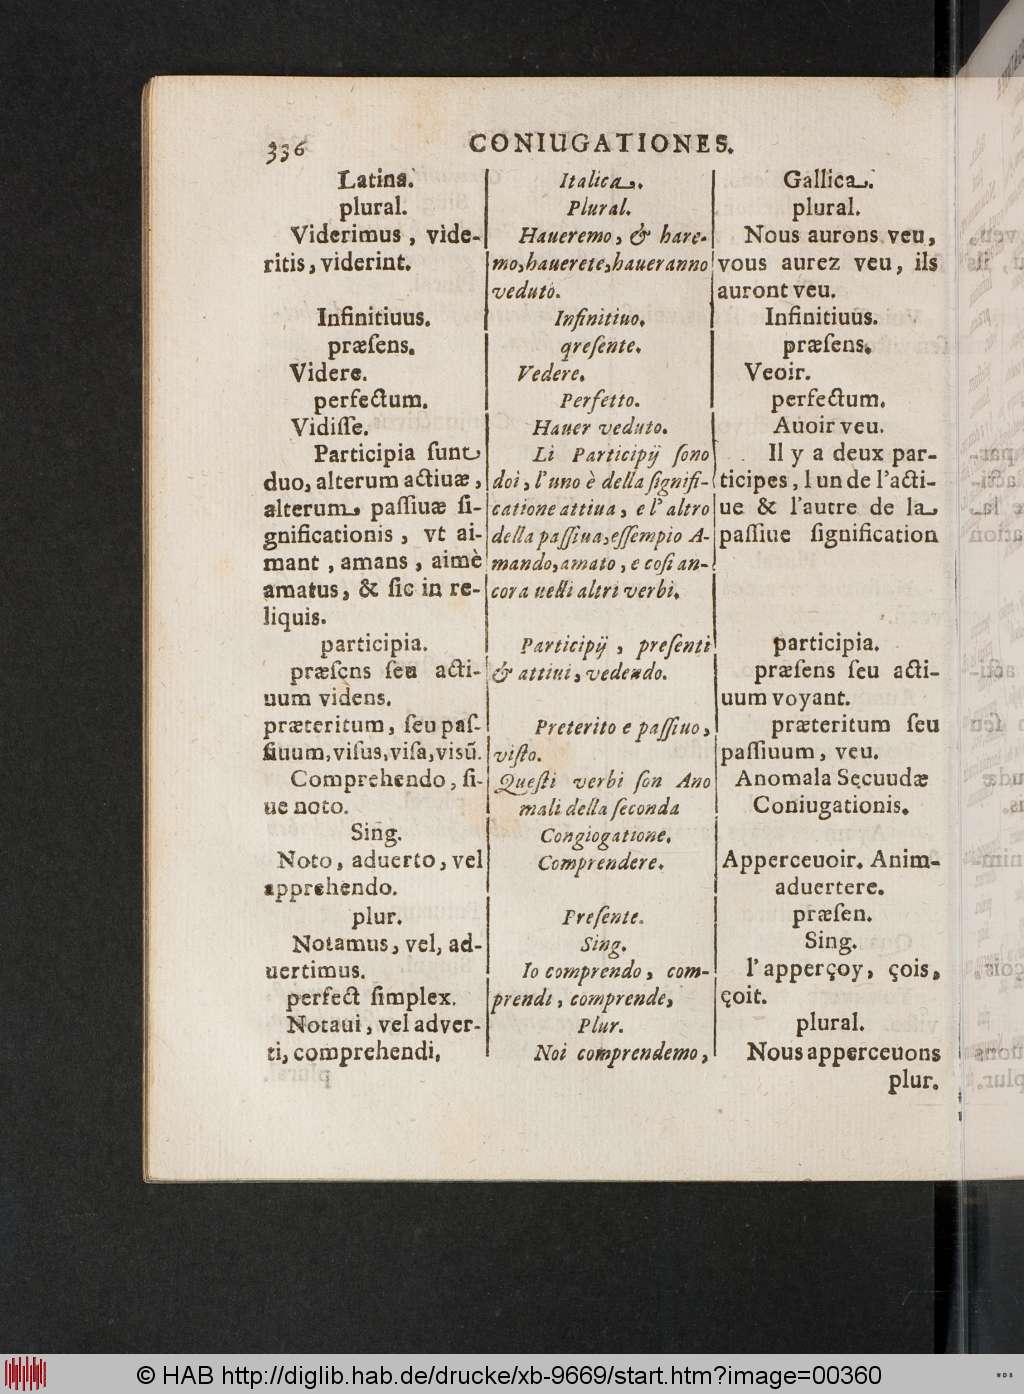 336
CONIUGATIONES.
Latina.
plural.
Viderimus, vide-
ritis, viderint.
Infinitiuus.
præſens.
Videre.
perfectum.
Vidiſſe.
Participia ſunt
duo, alterum actiuæ,
alterum paſſiuæ ſi-
gnificationis, vt ai-
mant, amans, aimè
amatus, & ſic in re-
liquis.
participia.
præſens ſeu acti-
uum videns.
præteritum, ſeu paſ-
ſiuum, viſus, viſa, visū.
Comprehendo, ſi-
ue noto.
Sing.
Noto, aduerto, vel
apprehendo.
plur.
Notamus, vel, ad-
uertimus.
perfect ſimplex.
Notaui, vel adver-
ti, comprehendi,
Italica.
Plural.
Haueremo, & hare-
mo, hauerete, haueranno
veduto.
Infinitiuo.
qreſente.
Vedere.
Perfetto.
Hauer veduto.
Li Participij ſono
doi, l'uno è della ſignifi-
catione attiua, e l' altro
della paſſiua, eſſempio A-
mando, amato, e coſi an-
cora nelli altri verbi.
Participij, preſenti
& attiui, vedendo.
Preterito e paſſiuo,
viſto.
Queſti verbi ſon Ano
mali della ſeconda
Congiogatione.
Comprendere.
Preſente.
Sing.
Io comprendo, com-
prendi, comprende,
Plur.
Noi comprendemo,
Gallica.
plural.
Nous aurons veu,
vous aurez veu, ils
auront veu.
Infinitiuus.
præſens.
Veoir.
perfectum.
Auoir veu.
Il y a deux par-
ticipes, l un de l'acti-
ue & l'autre de la
paſſiue ſignification
participia.
præſens ſeu acti-
uum voyant.
præteritum ſeu
paſſiuum, veu.
Anomala Secuudæ
Coniugationis.
Apperceuoir. Anim-
aduertere.
præſen.
Sing.
l' apperçoy, çois,
çoit.
plural.
Nous apperceuons
plur.
© HAB http://diglib.hab.de/drucke/xb-9669/start.htm?image=00360